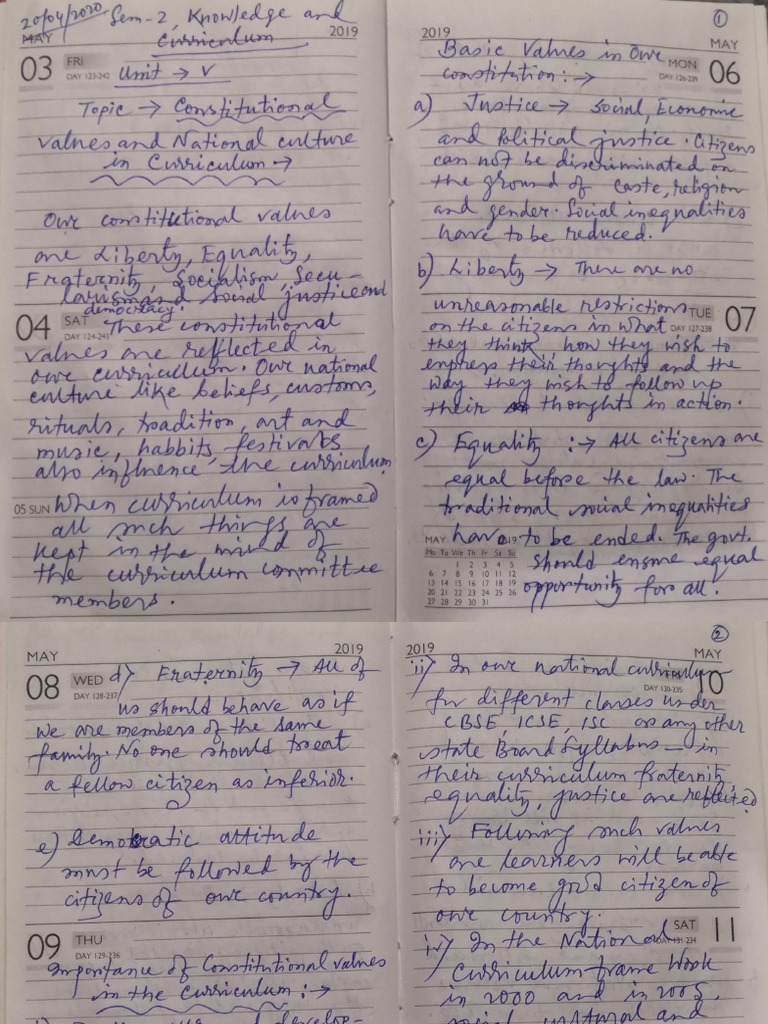 20/04/2020 Sem-2, Knowledge and
Curriculum
MAY 2019
03 FRI
DAY 123-242
Unit → V
Topic → Constitutional
values and National culture
in Curriculum →
Our constitutional values
are Liberty, Equality,
Fraternity, Socialism, Secu-
larism and Social justice and
democracy.
04 SAT
DAY 124-241
These constitutional
values are reflected in
our curriculum. Our national
culture like beliefs, customs,
rituals, tradition, art and
music, habbits, festivals
also influence the curriculum
05 SUN
When curriculum is framed
all such things are
kept in the mind of
the curriculum committee
members.
①
2019 MAY
Basic Values in Our
constitution :→
MON 06
DAY 126-239
a) Justice → Social, Economic
and Political justice. Citizens
can not be discriminated on
the ground of caste, religion
and gender. Social inequalities
have to be reduced.
b) Liberty → There are no
unreasonable restrictions
TUE 07
DAY 127-238
on the citizens in what
they think, how they wish to
express their thoughts and the
way they wish to follow up
their thoughts in action.
c) Equality :→ All citizens are
equal before the law. The
traditional social inequalities
have to be ended. The govt.
should ensure equal
opportunity for all.
MAY 2019
Mo Tu We Th Fr Sa Su
1 2 3 4 5
6 7 8 9 10 11 12
13 14 15 16 17 18 19
20 21 22 23 24 25 26
27 28 29 30 31
MAY 2019
08 WED
DAY 128-237
d) Fraternity → All of
us should behave as if
we are members of the same
family. No one should treat
a fellow citizen as inferior.
e) Democratic attitude
must be followed by the
citizens of our country.
09 THU
DAY 129-236
Importance of Constitutional values
in the Curriculum :→
develop-
②
2019 MAY
10
DAY 130-235
ii) In our national
for different classes under
CBSE, ICSE, ISC or any other
state Board Syllabus — in
their curriculum fraternity
equality, justice are reflected
iii) Following such values
are learners will be able
to become good citizen of
our country.
SAT 11
DAY 131-234
iv) In the National
Curriculum-frame Work
in 2000 and in 2005,
social, cultural and